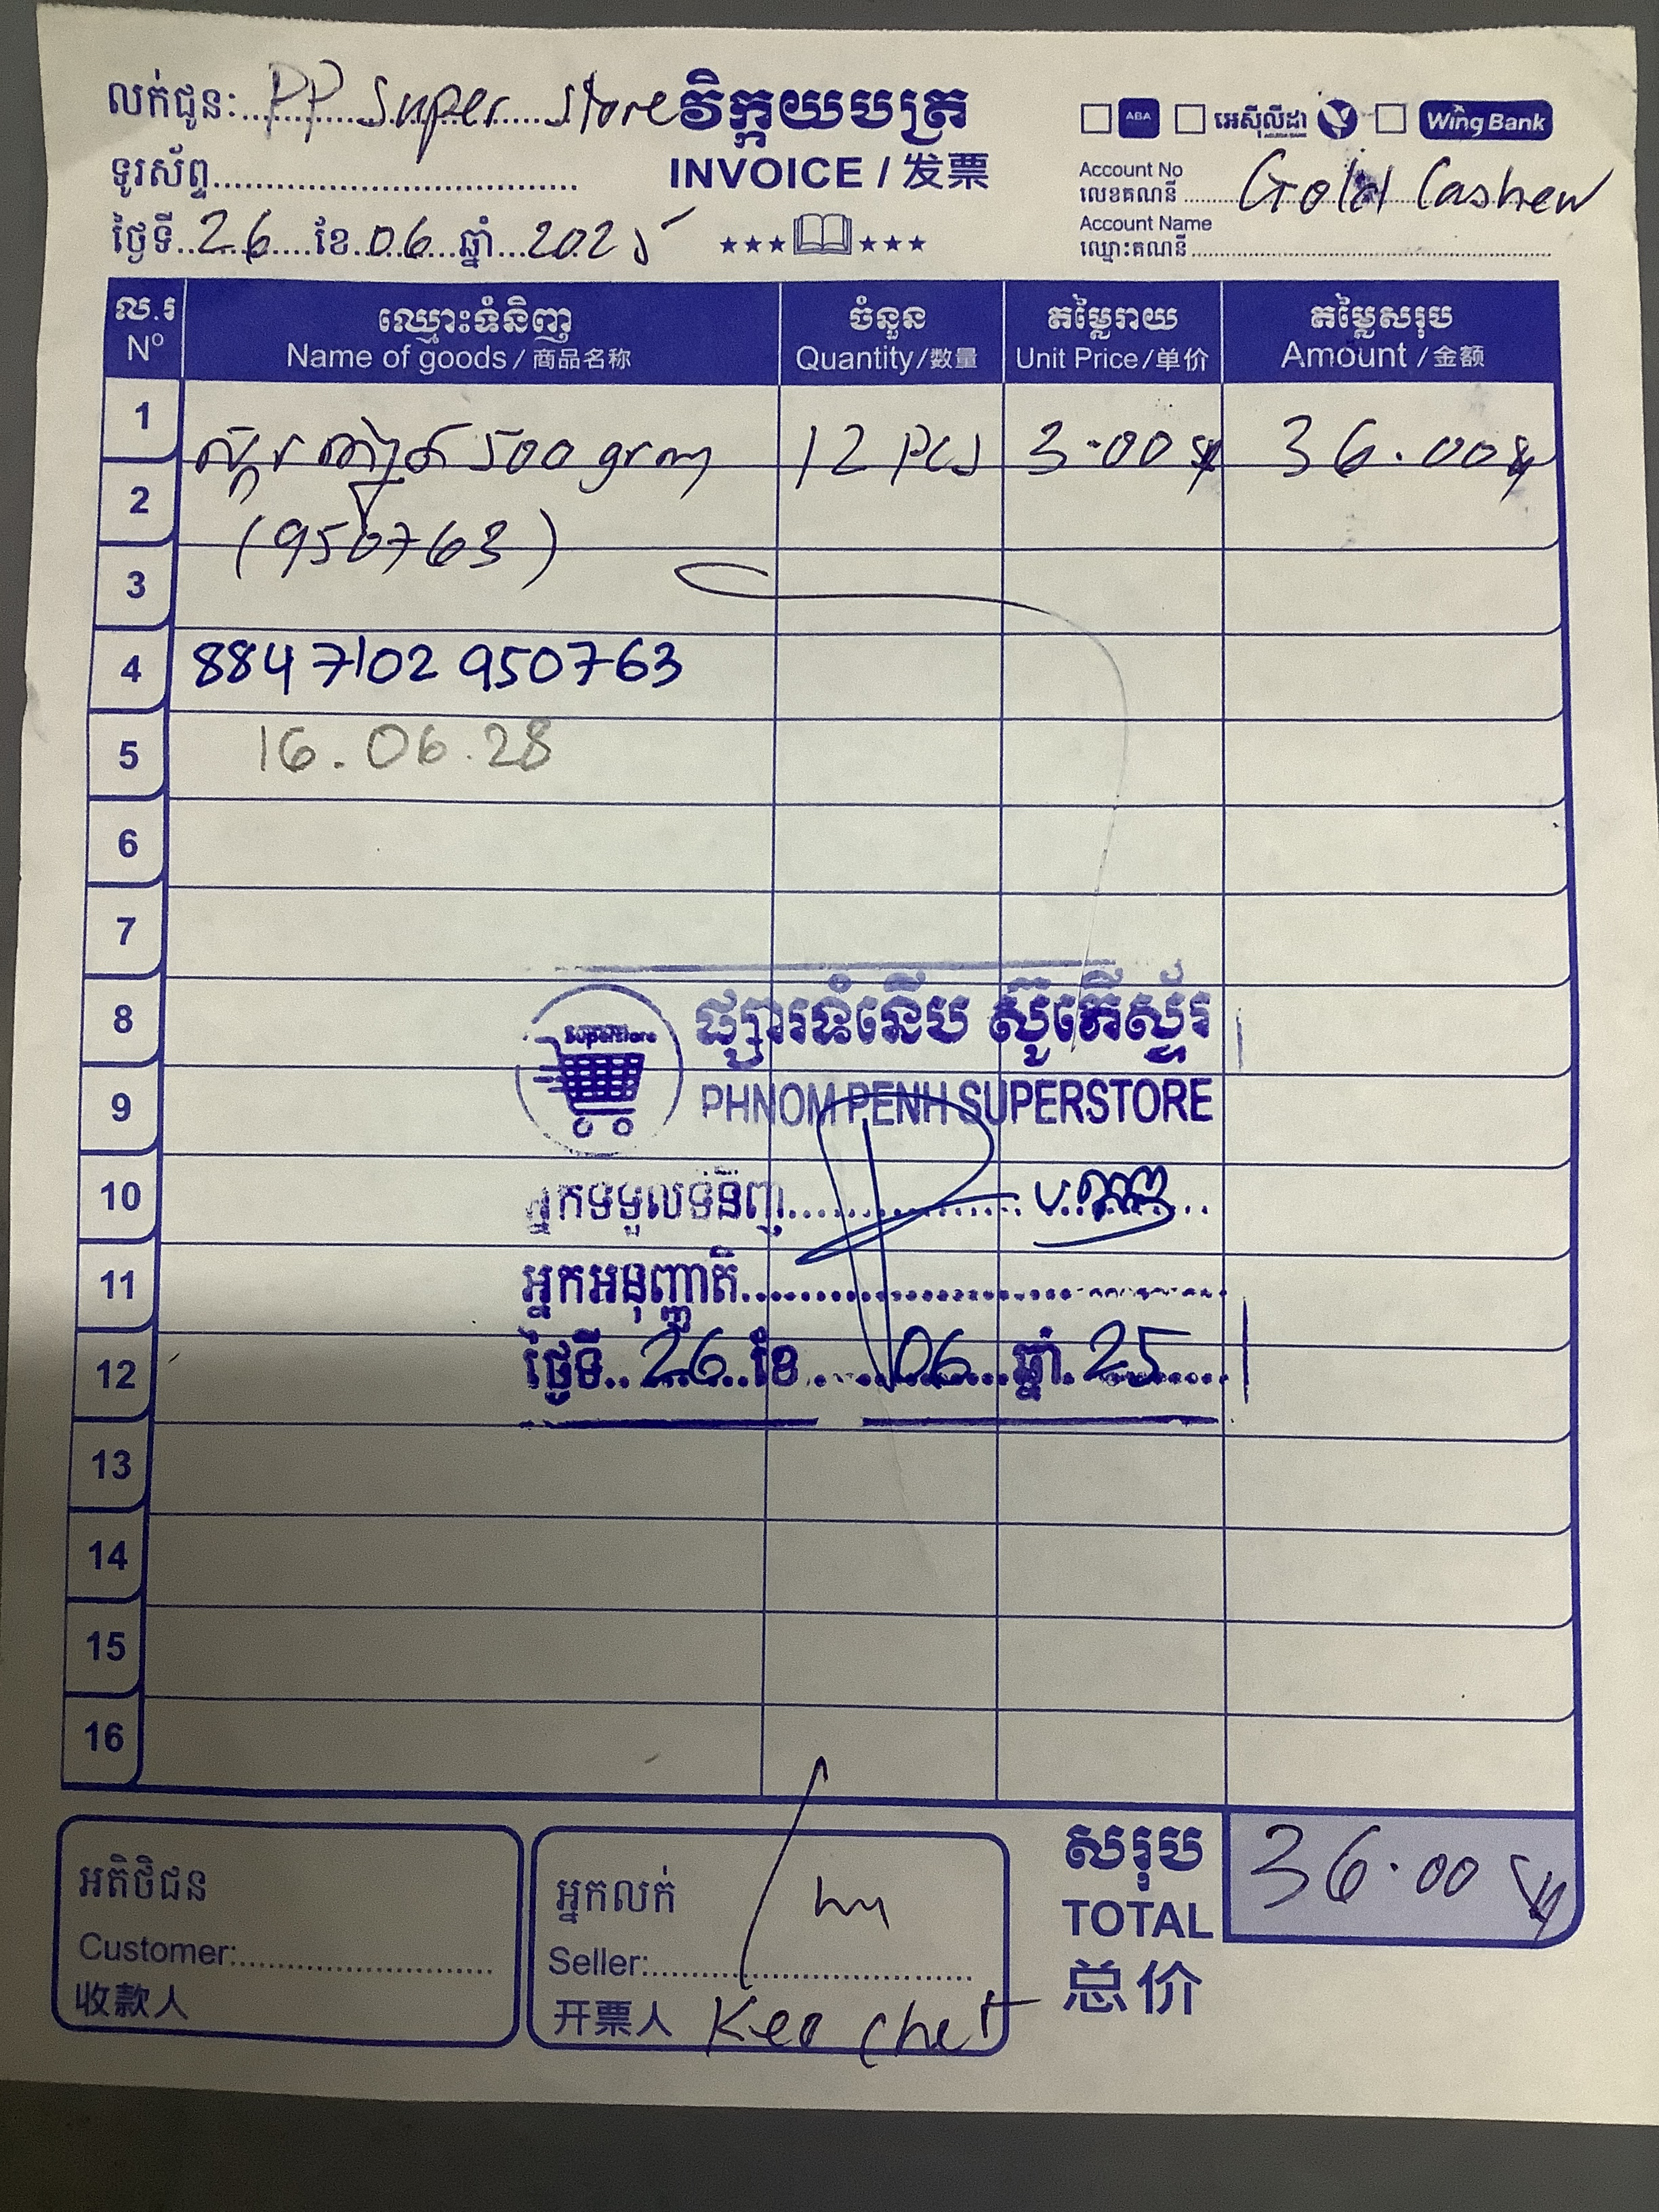 លក់ជូន: PP Super Store
វិក្កយបត្រ
INVOICE / 发票
ទូរស័ព្ទ
ថ្ងៃទី 26 ខែ 06 ឆ្នាំ 2025
ABA អេស៊ីលីដា Wing Bank
Account No
លេខគណនី Gold Cashew
Account Name
ឈ្មោះគណនី
ល.រ ឈ្មោះទំនិញ ចំនួន តម្លៃរាយ តម្លៃសរុប
Nº Name of goods / 商品名称 Quantity/数量 Unit Price/单价 Amount /金额
1 ស្ករ 500 gram 12 PCS 3.00$ 36.00$
2 (950763)
3
4 8847102 950763
5 16.06.28
6
7
8 Superstore ផ្សារទំនើប ស៊ូភើស្ទ័រ
9 PHNOM PENH SUPERSTORE
10 អ្នកទទួលទំនិញ
11 អ្នកអនុញ្ញាតិ
12 ថ្ងៃទី 26 ខែ 06 ឆ្នាំ 25
13
14
15
16
អតិថិជន
Customer:
收款人
អ្នកលក់
Seller:
开票人 Keo Chet
សរុប
TOTAL
总价
36.00 $